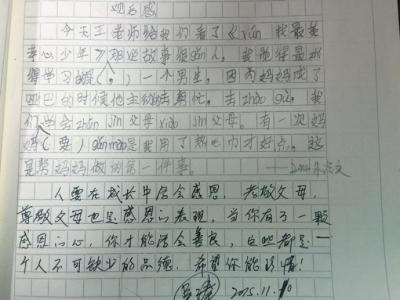 观后感
今天王老师给我们看了《xún 找最美
孝心少年》那些故事很gǎn人。我觉得最
得学习的是(。)一个男生,因为妈妈成了
的时候他主动去帮忙,去zhào gù,我
们学会zūn jìn父母xiào jìn父母。有一次妈
妈(要)gǎn mào是我用了热 才好点。这
是帮妈妈做的第一件事。
人要在成长中学会感恩,孝敬父母,
尊敬父母也是感恩的表现,当你有了一颗
感恩的心,你才能学会善良,这些都是一
个人不可缺少的品德,希望你能珍惜!
2015.11.10